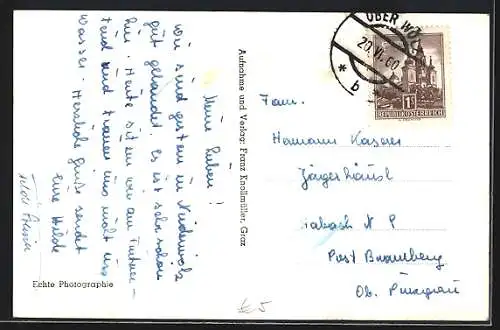 Meine Lieben!
Wir sind gestern in Niederwölz
gut gelandet. Es ist sehr schön
hier. Heute sitzen wir am
und trauen uns nicht ins
Wasser. Herzliche Grüße sendet
Eure Hilde
Aufnahme und Verlag: Franz Knollmüller, Graz
Echte Photographie
OBER WÖLZ
20.VI.60
* b
1S
REPUBLIK ÖSTERREICH
Fam.
Hermann Kaserer
Jägerhäusl
N P
Post Bramberg
Ob. Pinzgau
€ 5